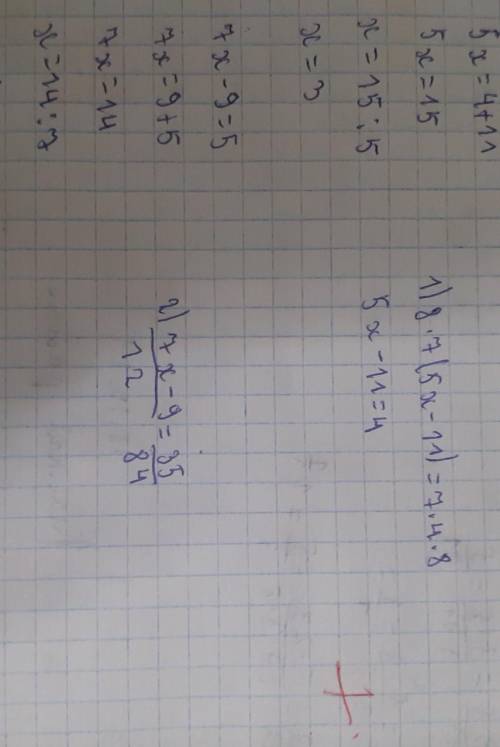 5x=4+11
5x=15
x=15:5
x=3
7x-9=5
7x=9+5
7x=14
x=14:7
1) 8·7(5x-11)=7·4·8
5x-11=4
2) 7x-9/12=35/84
+